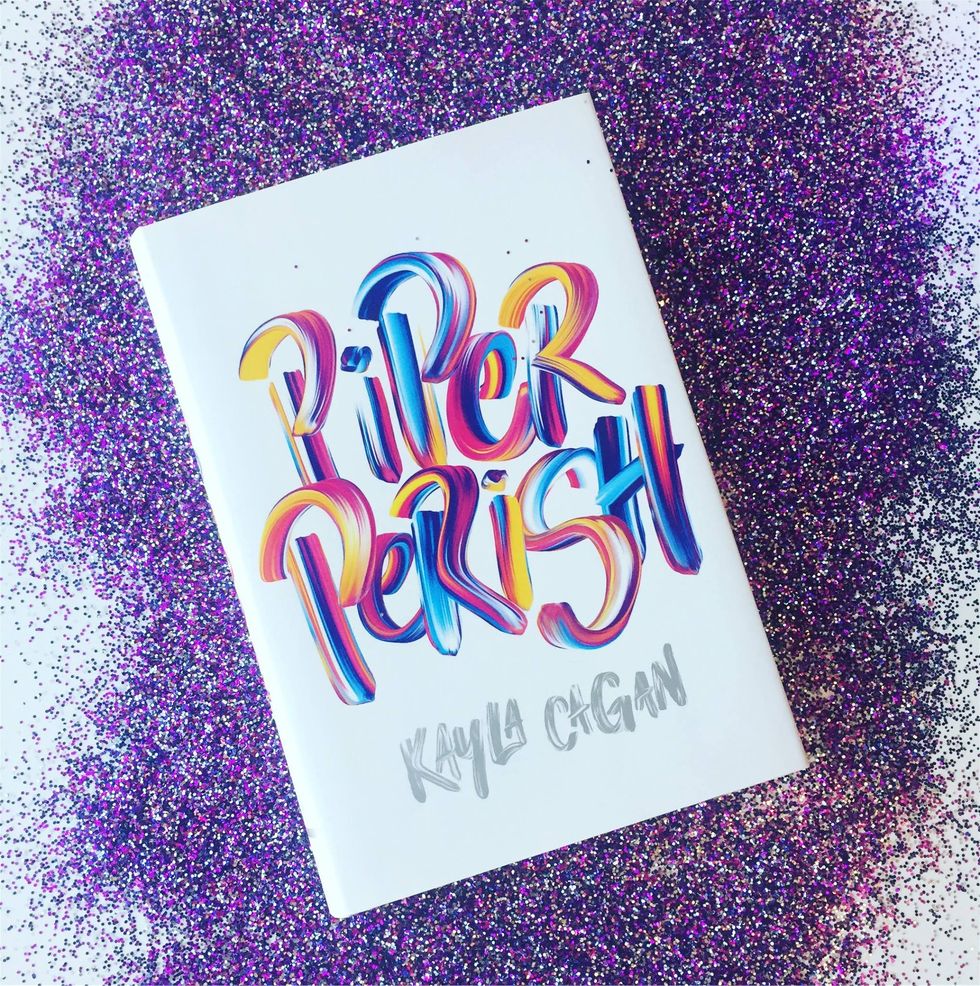 PiPeR
PeRiSH
KAYLA CAGAN